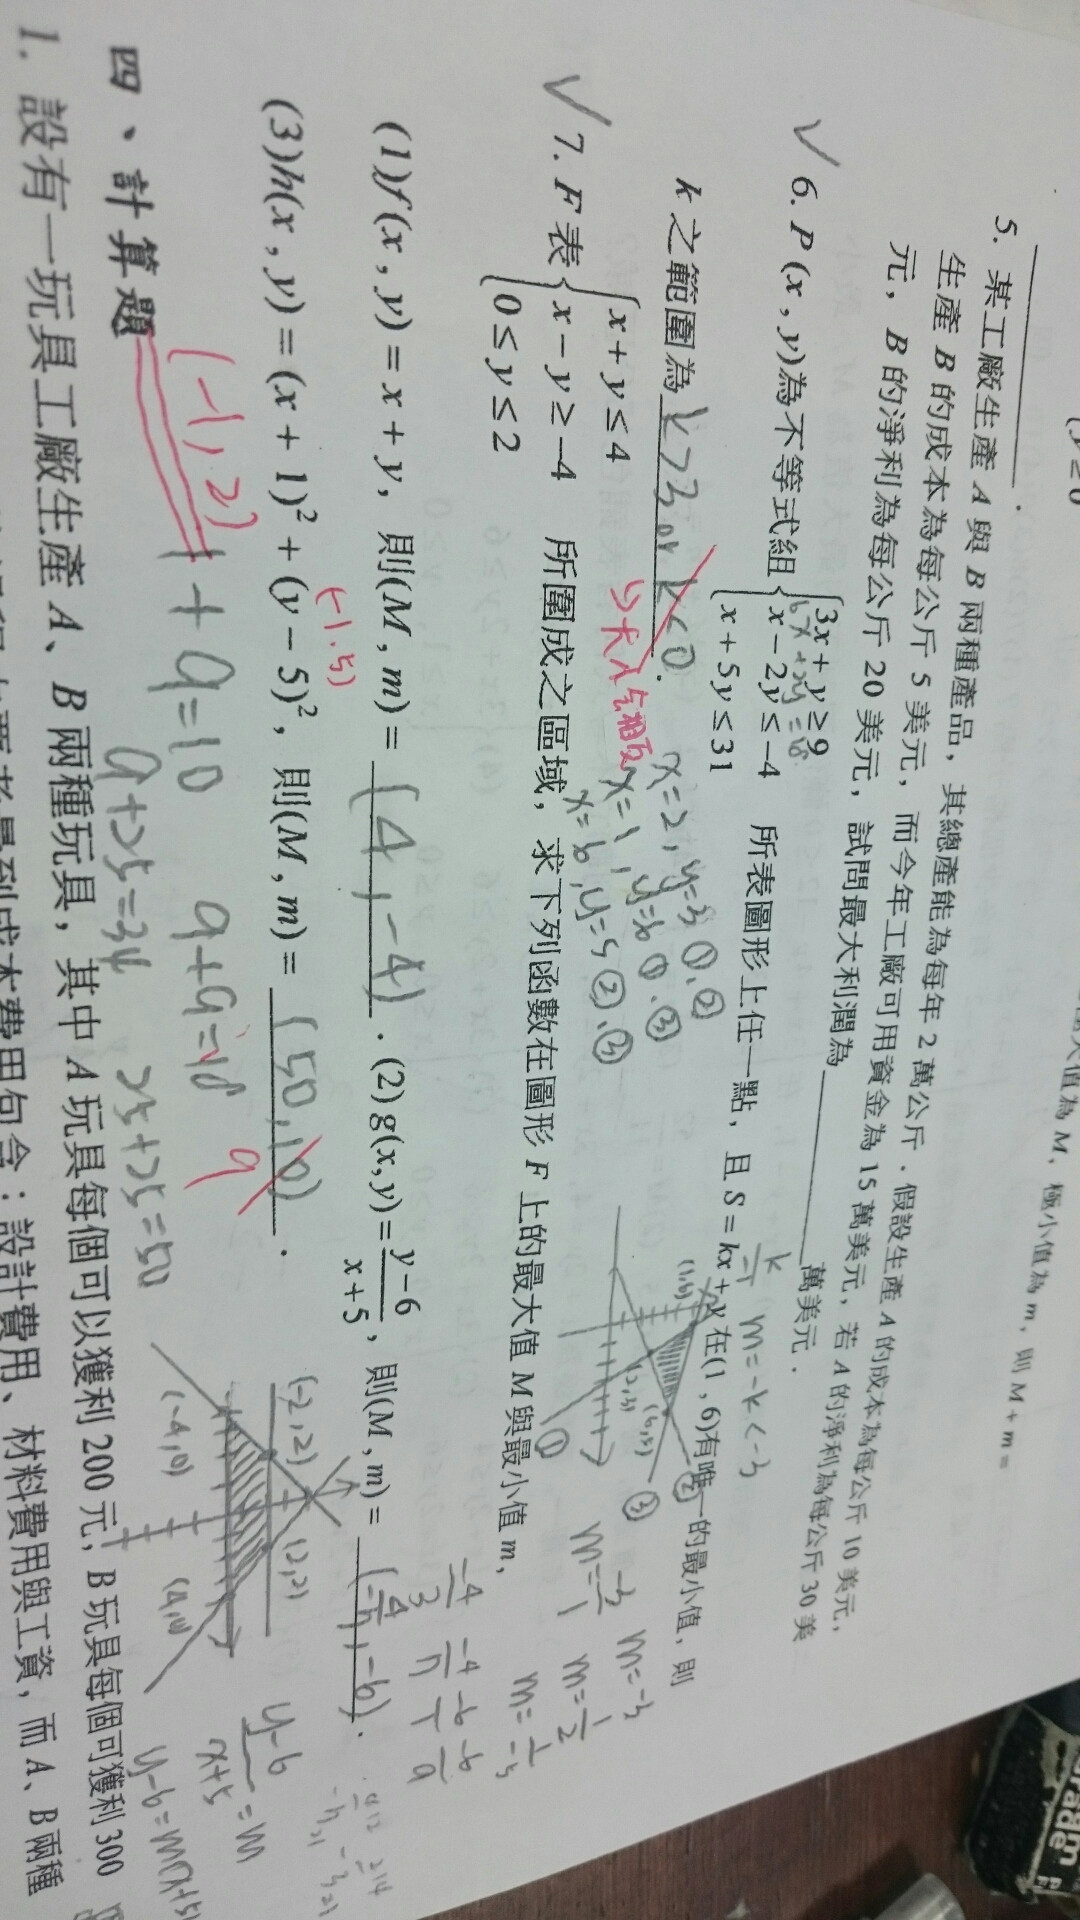 (y≥0
值為 M，極小值為 m，則 M+m=
______．
5. 某工廠生產 A 與 B 兩種產品，其總產能為每年 2 萬公斤．假設生產 A 的成本為每公斤 10 美元，
生產 B 的成本為每公斤 5 美元，而今年工廠可用資金為 15 萬美元，若 A 的淨利為每公斤 30 美
元，B 的淨利為每公斤 20 美元，試問最大利潤為______萬美元．
✓ 6. P(x, y)為不等式組{3x+y≥9
x-2y≤-4
x+5y≤31
所表圖形上任一點，且 S=kx+y 在(1,6)有唯一的最小值，則
k 之範圍為 k>3 or k<0．
x=2, y=3 ①、②
x=1, y=6 ①、③
x=6, y=5 ②、③
m=-k<-3
(1,6)
(2,3)
(6,5)
①
②
③
m=-3
m=1/2
✓ 7. F 表{x+y≤4
x-y≥-4
0≤y≤2
所圍成之區域，求下列函數在圖形 F 上的最大值 M 與最小值 m，
(1)f(x, y)=x+y，則(M, m)= (4, -4)．(2)g(x,y)=y-6/x+5，則(M, m)=
(3)h(x, y)=(x+1)²+(y-5)²，則(M, m)= (50, 10)．
9
(-1.5)
(-1, 2)
1+9=10
9+9=18
9+25=34
25+25=50
(-2,2)
(2,2)
(-4,0)
(4,0)
y-6/x+5=m
y-6=m(x+5)
四、計算題
1. 設有一玩具工廠生產 A、B 兩種玩具，其中 A 玩具每個可以獲利 200 元，B 玩具每個可獲利 300
費用包含：設計費用、材料費用與工資，而 A、B 兩種